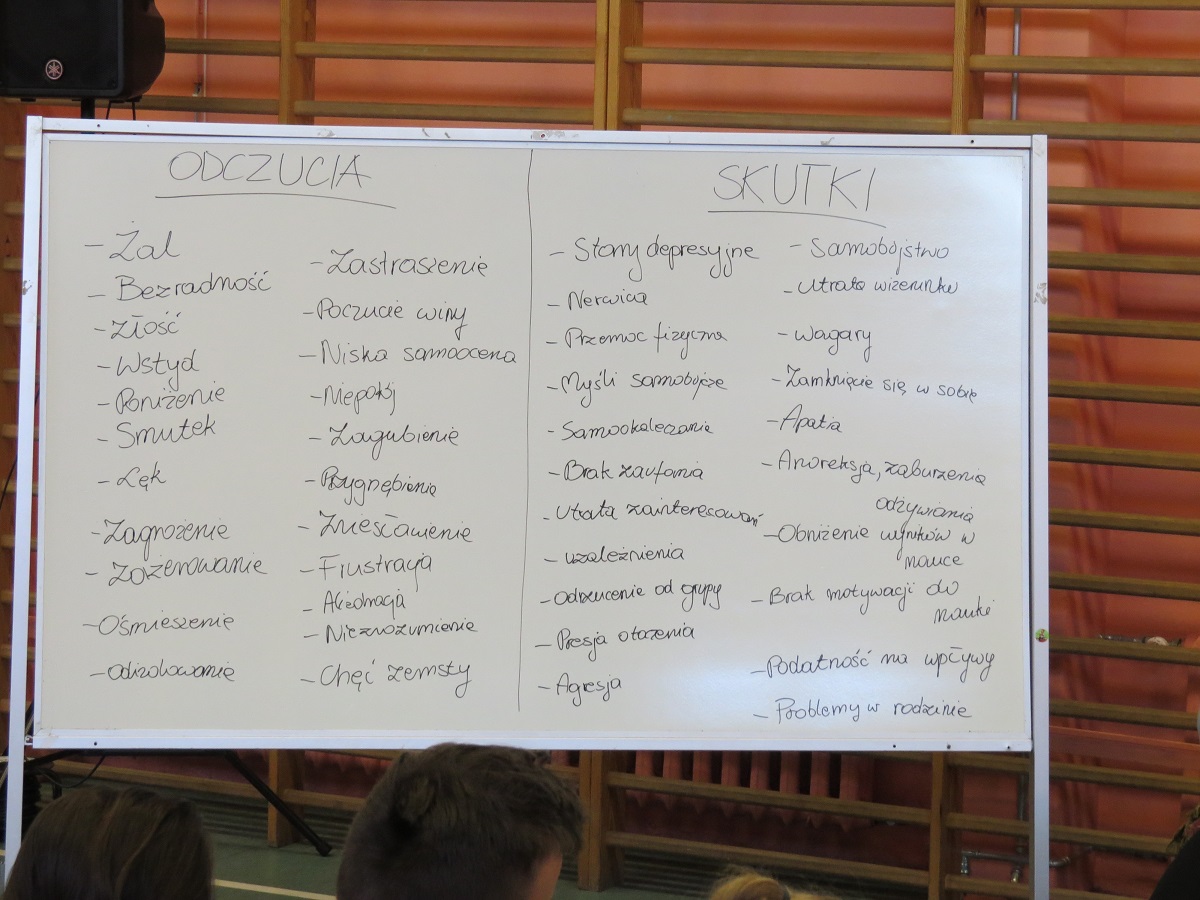 ODCZUCIA
- Żal
- Bezradność
- Złość
- Wstyd
- Poniżenie
- Smutek
- Lęk
- Zagrożenie
- Zażenowanie
- Ośmieszenie
- Odizolowanie
- Zastraszenie
- Poczucie winy
- Niska samoocena
- Niepokój
- Zagubienie
- Przygnębienie
- Zniesławienie
- Frustracja
- Niezrozumienie
- Chęć zemsty
SKUTKI
- Stany depresyjne
- Nerwica
- Przemoc fizyczna
- Myśli samobójcze
- Samookaleczanie
- Brak zaufania
- Utrata zainteresowań
- uzależnienia
- Odrzucenie od grupy
- Presja otoczenia
- Agresja
- Samobójstwo
- Utrata wizerunku
- Wagary
- Zamknięcie się w sobie
- Apatia
- Anoreksja, zaburzenia
odżywiania
- Obniżenie wyników w
nauce
- Brak motywacji do
nauki
- Podatność na wpływy
- Problemy w rodzinie